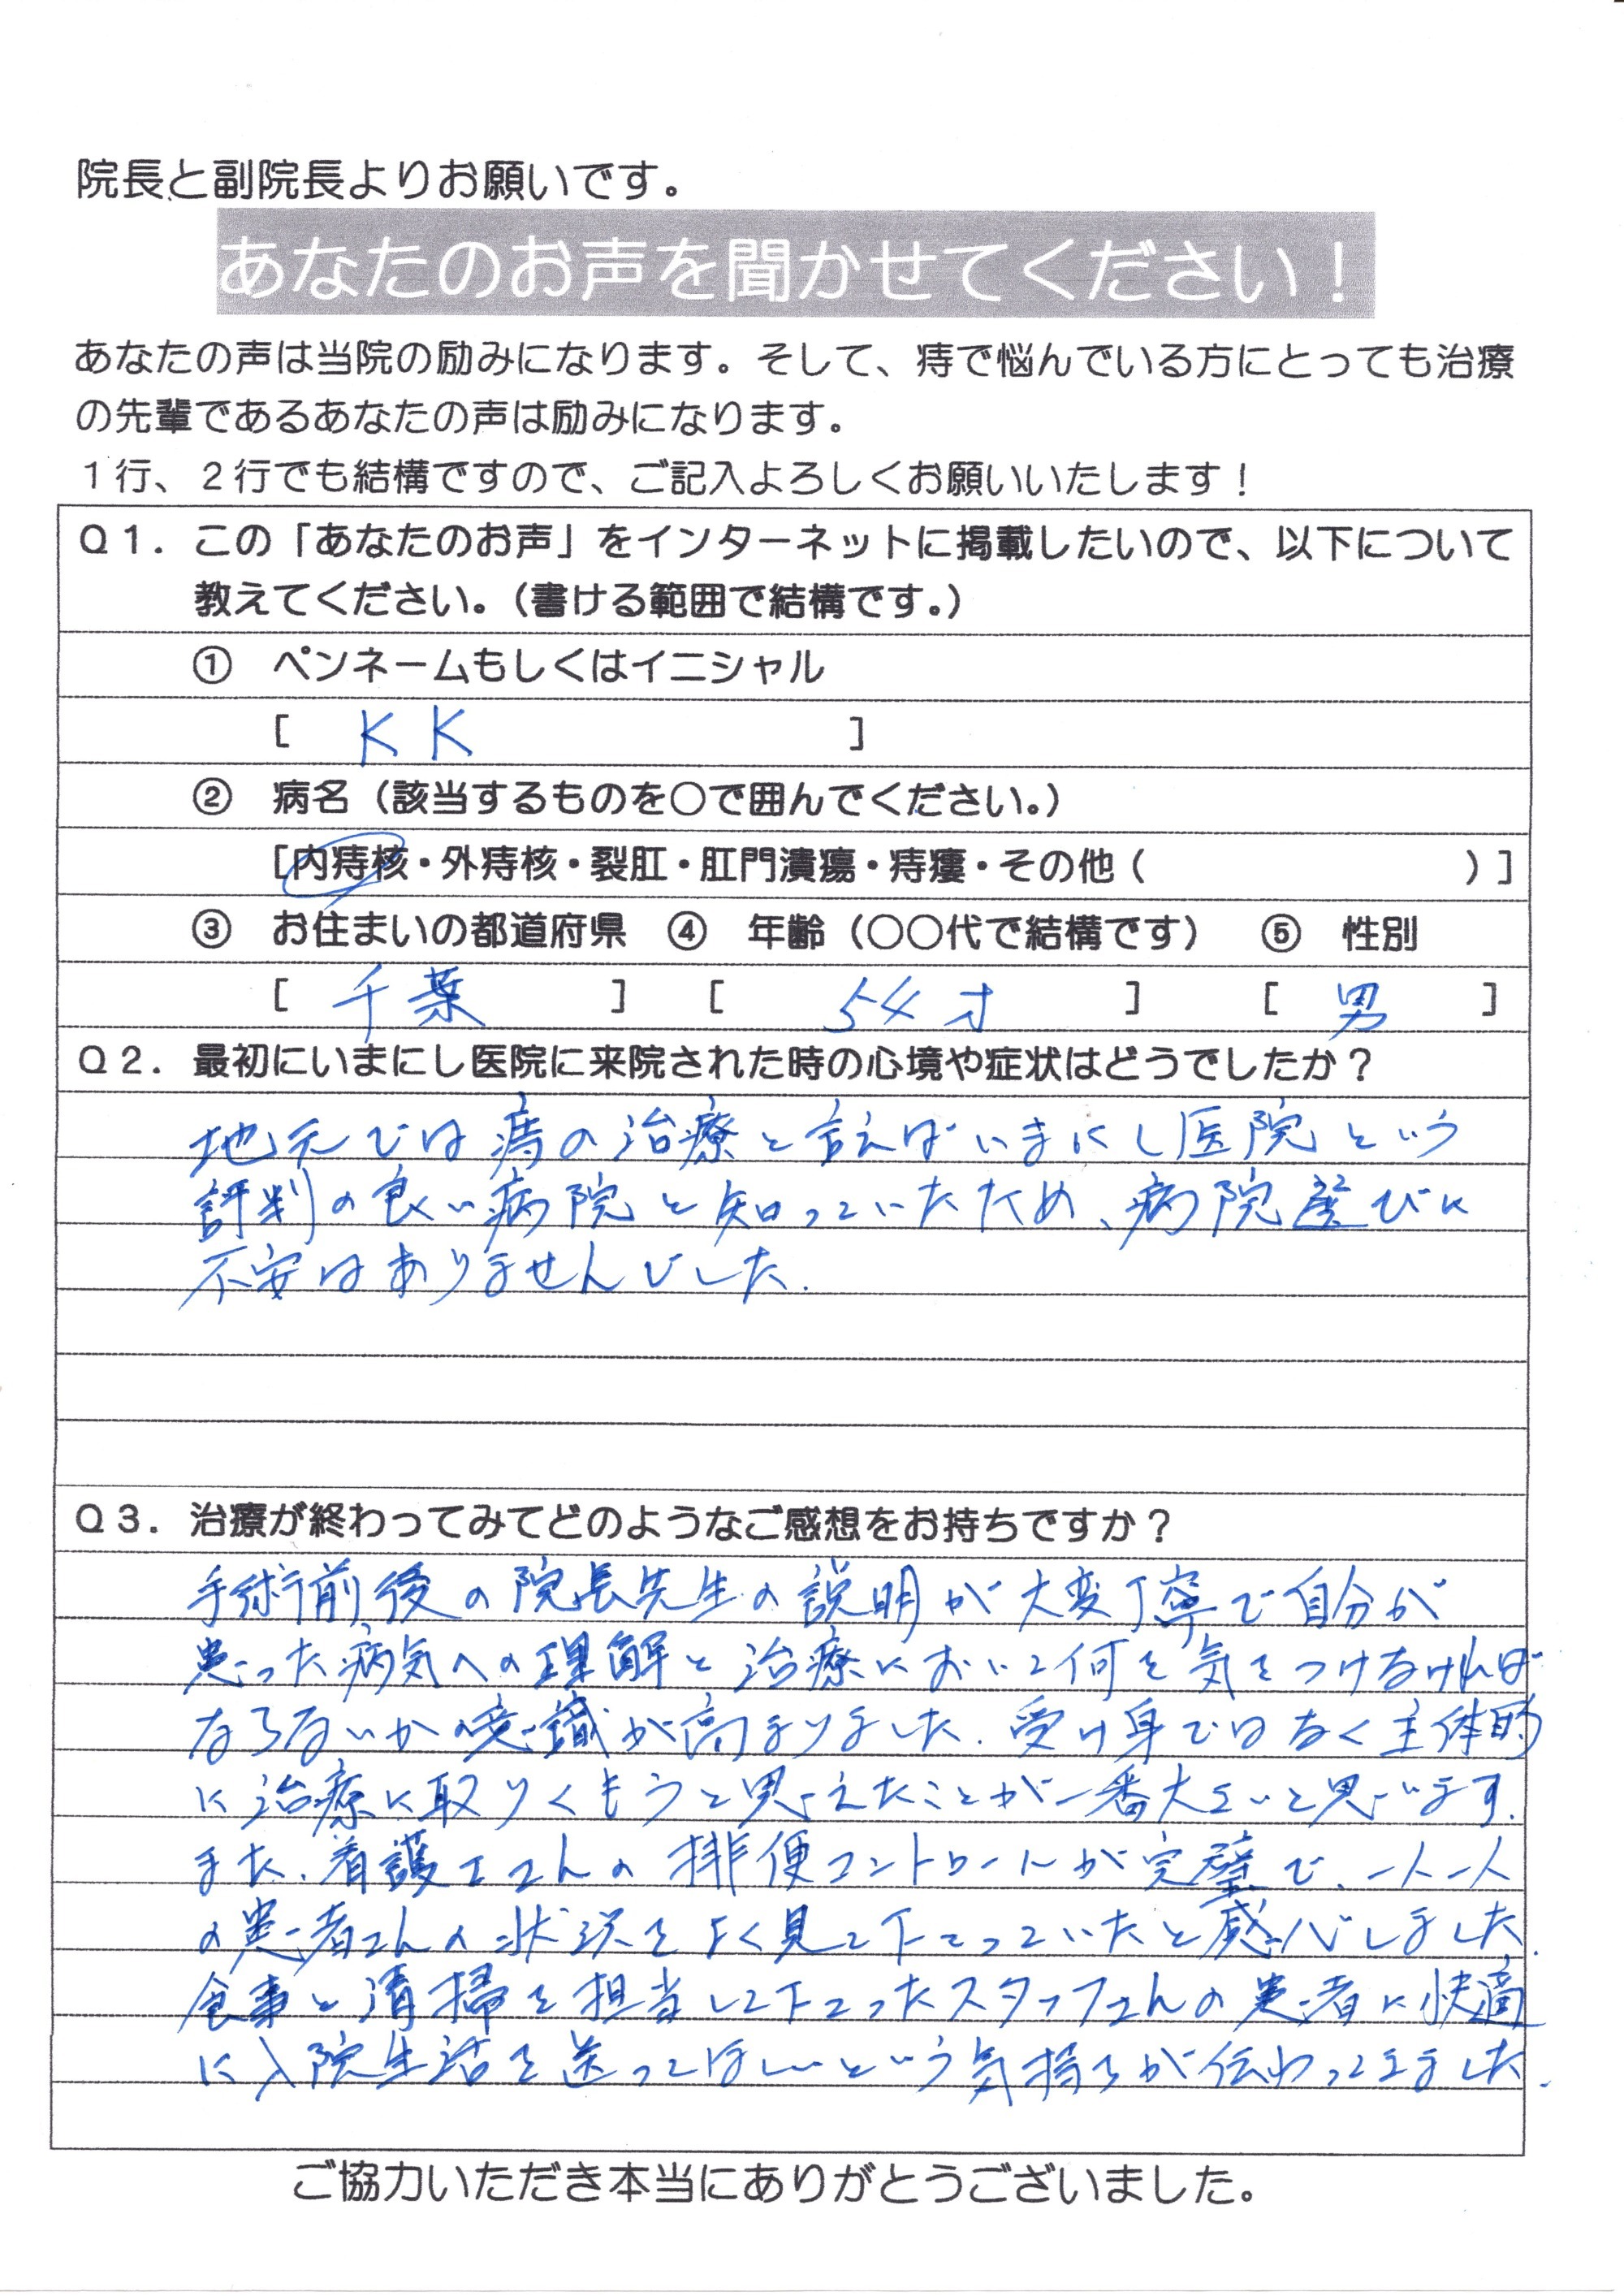 院長と副院長よりお願いです。
あなたのお声を聞かせてください！
あなたの声は当院の励みになります。そして、痔で悩んでいる方にとっても治療
の先輩であるあなたの声は励みになります。
１行、２行でも結構ですので、ご記入よろしくお願いいたします！
Ｑ１．この「あなたのお声」をインターネットに掲載したいので、以下について
教えてください。（書ける範囲で結構です。）
① ペンネームもしくはイニシャル
[ KK ]
② 病名（該当するものを○で囲んでください。）
[内痔核・外痔核・裂肛・肛門潰瘍・痔瘻・その他（ ）]
③ お住まいの都道府県 ④ 年齢（○○代で結構です） ⑤ 性別
[ 千葉 ] [ 54才 ] [ 男 ]
Ｑ２．最初にいまにし医院に来院された時の心境や症状はどうでしたか？
地元では痔の治療と言えばいまにし医院という
評判の良い病院と知っていたため、病院選びに
不安はありませんでした.
Ｑ３．治療が終わってみてどのようなご感想をお持ちですか？
手術前後の院長先生の説明が大変丁寧で自分が
患った病気への理解と治療において何を気をつけなければ
ならないかの意識が高まりました. 受け身ではなく主体的
に治療に取りくもうと思えたことが一番大きいと思います.
また、看護士さんの排便コントロールが完璧で、一人一人
の患者さんの状況をよく見て下さっていたと感心しました.
食事と清掃を担当して下さったスタッフさんの患者に快適
に入院生活を送ってほしいという気持ちが伝わってきました.
ご協力いただき本当にありがとうございました。